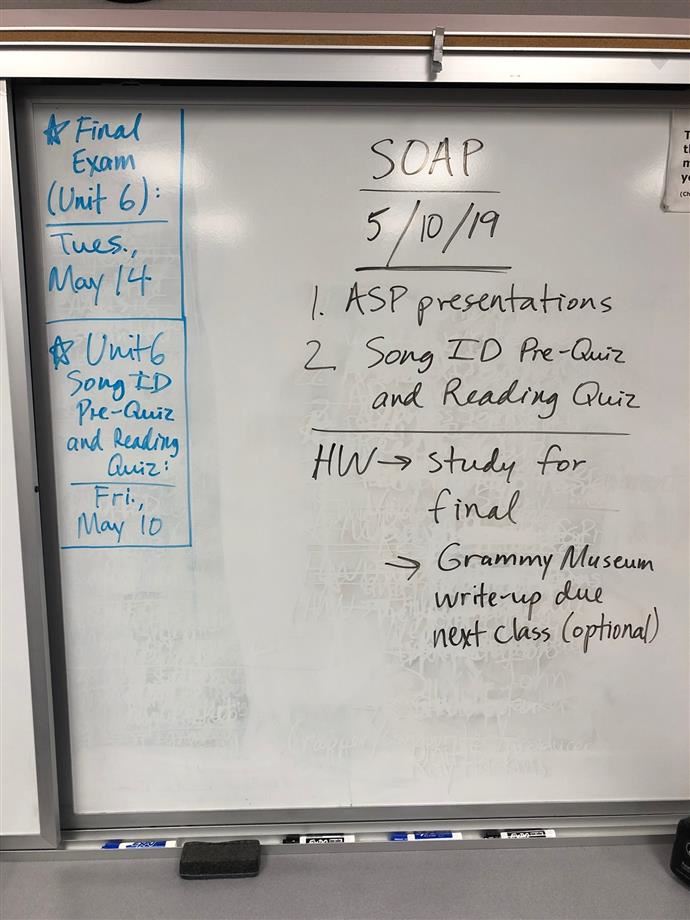 ☆ Final
Exam
(Unit 6):
Tues.,
May 14
☆ Unit 6
Song ID
Pre-Quiz
and Reading
Quiz:
Fri.,
May 10
SOAP
5/10/19
1. ASP presentations
2. Song ID Pre-Quiz
and Reading Quiz
HW → study for
final
→ Grammy Museum
write-up due
next class (optional)